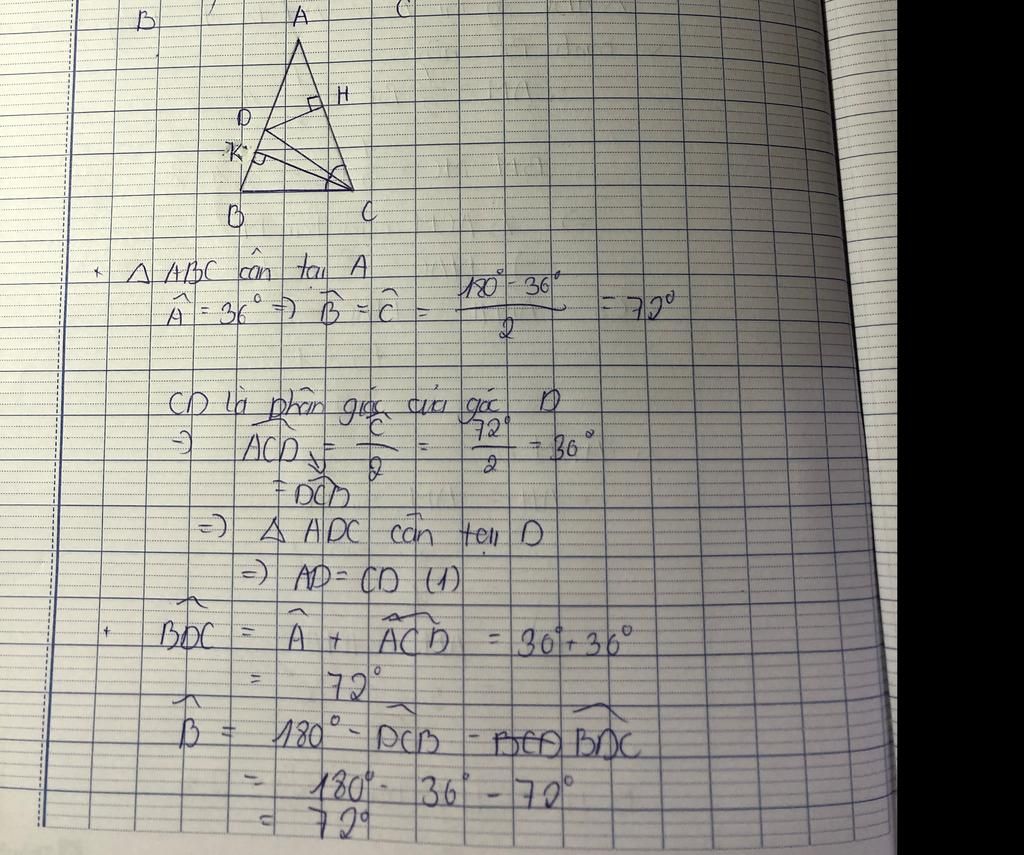 B C
A
H
D
K
B C
+ Δ ABC cân tại A
Â = 36° => B̂ = Ĉ = (180° - 36°)/2 = 72°
CD là phân giác của góc D
=> \widehat{ACD} = Ĉ/2 = 72°/2 = 36°
= \widehat{DCB}
=> Δ ADC cân tại D
=> AD = CD (1)
+ \widehat{BDC} = Â + \widehat{ACD} = 36° + 36°
= 72°
B̂ = 180° - \widehat{DCB} - \widehat{BDC}
= 180° - 36° - 72°
= 72°